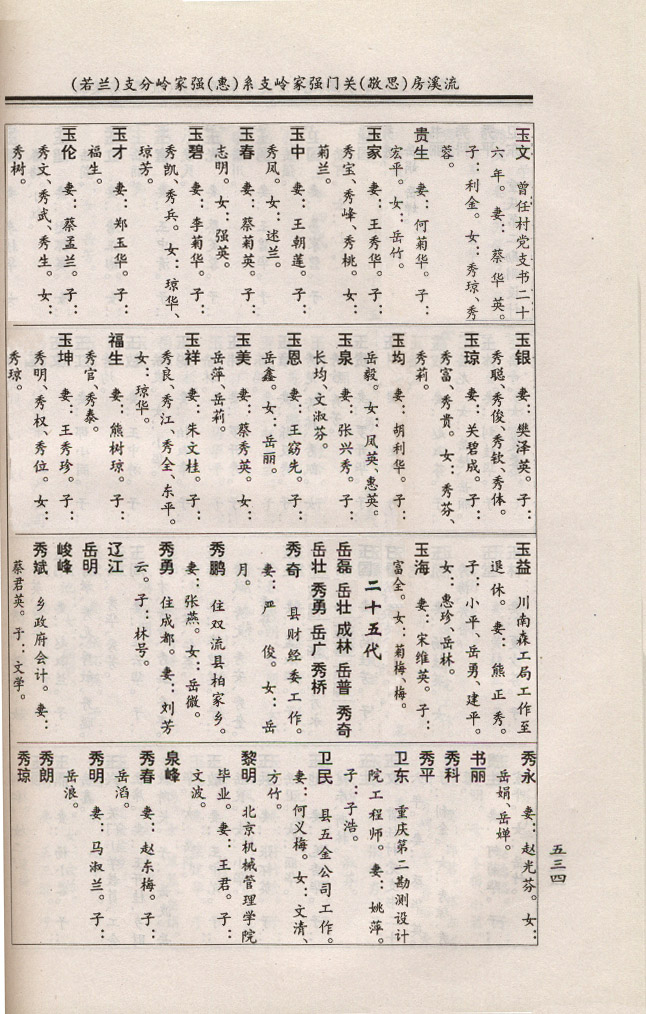 流溪房(敬思)关门强家岭支系(惠)强家岭分支(若兰)
玉文　曾任村党支书二十
六年。妻：蔡华英。
子：利金。女：秀琼、秀
蓉。
贵生　妻：何菊华。子：
宏平。女：岳竹。
玉家　妻：王秀华。子：
秀宝、秀峰、秀桃。女：
菊兰。
玉中　妻：王朝莲。子：
秀凤。女：述兰。
玉春　妻：蔡菊英。子：
志明。女：强英。
玉碧　妻：李菊华。子：
秀凯、秀兵。女：琼华、
琼芳。
玉才　妻：郑玉华。子：
福生。
玉伦　妻：蔡孟兰。子：
秀文、秀武、秀生。女：
秀树。
玉银　妻：樊泽英。子：
秀聪、秀俊、秀钦、秀体。
玉琼　妻：关碧成。子：
秀富、秀贵。女：秀芬、
秀莉。
玉均　妻：胡利华。子：
岳毅。女：凤英、惠英。
玉泉　妻：张兴秀。子：
长均、文淑芬。
玉恩　妻：王窈先。子：
岳鑫。女：岳丽。
玉美　妻：蔡秀英。女：
岳萍、岳莉。
玉祥　妻：朱文桂。子：
秀良、秀江、秀全、东平。
女：琼华。
福生　妻：熊树琼。子：
秀官、秀泰。
玉坤　妻：王秀珍。子：
秀明、秀权、秀位。女：
秀琼。
玉益　川南森工局工作至
退休。妻：熊正秀。
子：小平、岳勇、建平。
女：惠珍、岳林。
玉海　妻：宋维英。子：
富全。女：菊梅、梅。
二十五代
岳磊　岳壮　成林　岳普　秀奇
岳壮　秀勇　岳广　秀桥
秀奇　县财经委工作。
妻：严俊。女：岳
月。
秀鹏　住双流县柏家乡。
妻：张燕。女：岳微。
秀勇　住成都。妻：刘芳
云。子：林号。
辽江
岳明
峻峰
秀斌　乡政府会计。妻：
蔡君英。子：文学。
秀永　妻：赵光芬。女：
岳娟、岳婵。
书丽
秀科
秀平
卫东　重庆第二勘测设计
院工程师。妻：姚萍。
子：子浩。
卫民　县五金公司工作。
妻：何义梅。女：文清、
方竹。
黎明　北京机械管理学院
毕业。妻：王君。子：
文波。
泉峰
秀春　妻：赵东梅。子：
岳滔。
秀明　妻：马淑兰。子：
岳浪。
秀朗
秀琼
五三四